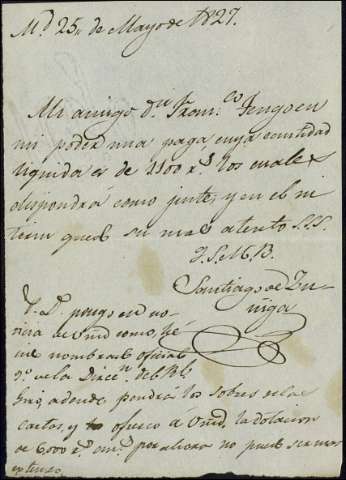 Md 25,, de Mayo de 1827.
Mi amigo Dn Franco Tengo en
mi poder una paga cuya cantidad
liquida es de 1100 rs los cuales
dispondrá como juste, y en el in
terin queda su mas atento S.S.S.
Q.S.M.B.
Santiago de Zu-
ñiga
P. D. pongo en no-
ticia de Vmd como, he
sido nombrado oficial
2º de la Direcn del Rl
Giro, adonde pondra los sobres de las
cartas, y ofresco á Vmd, la dotacion
de 6,000 rs. por ahora no puedo ser mas
extenso.